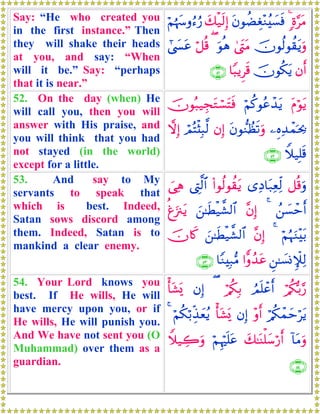 Say: “He who created you
in the first instance.” Then
they will shake their heads
at you, and say: “When
will it be.” Say: “perhaps
that it is near.”
مَرَّةٖۚ فَسَيُنۡغِضُونَ إِلَيۡكَ رُءُوسَهُمۡ
وَيَقُولُونَ مَتَىٰ هُوَۖ قُلۡ عَسَىٰٓ
أَن يَكُونَ قَرِيبٗا ٥١
52. On the day (when) He
will call you, then you will
answer with His praise, and
you will think that you had
not stayed (in the world)
except for a little.
يَوۡمَ يَدۡعُوكُمۡ فَتَسۡتَجِيبُونَ
بِحَمۡدِهِۦ وَتَظُنُّونَ إِن لَّبِثۡتُمۡ إِلَّا
قَلِيلٗا ٥٢
53. And say to My
servants to speak that
which is best. Indeed,
Satan sows discord among
them. Indeed, Satan is to
mankind a clear enemy.
وَقُل لِّعِبَادِي يَقُولُواْ ٱلَّتِي هِيَ
أَحۡسَنُۚ إِنَّ ٱلشَّيۡطَٰنَ يَنزَغُ
بَيۡنَهُمۡۚ إِنَّ ٱلشَّيۡطَٰنَ كَانَ
لِلۡإِنسَٰنِ عَدُوّٗا مُّبِينٗا ٥٣
54. Your Lord knows you
best. If He wills, He will
have mercy upon you, or if
He wills, He will punish you.
And We have not sent you (O
Muhammad) over them as a
guardian.
رَّبُّكُمۡ أَعۡلَمُ بِكُمۡۖ إِن يَشَأۡ
يَرۡحَمۡكُمۡ أَوۡ إِن يَشَأۡ يُعَذِّبۡكُمۡۚ
وَمَآ أَرۡسَلۡنَٰكَ عَلَيۡهِمۡ وَكِيلٗا
٥٤